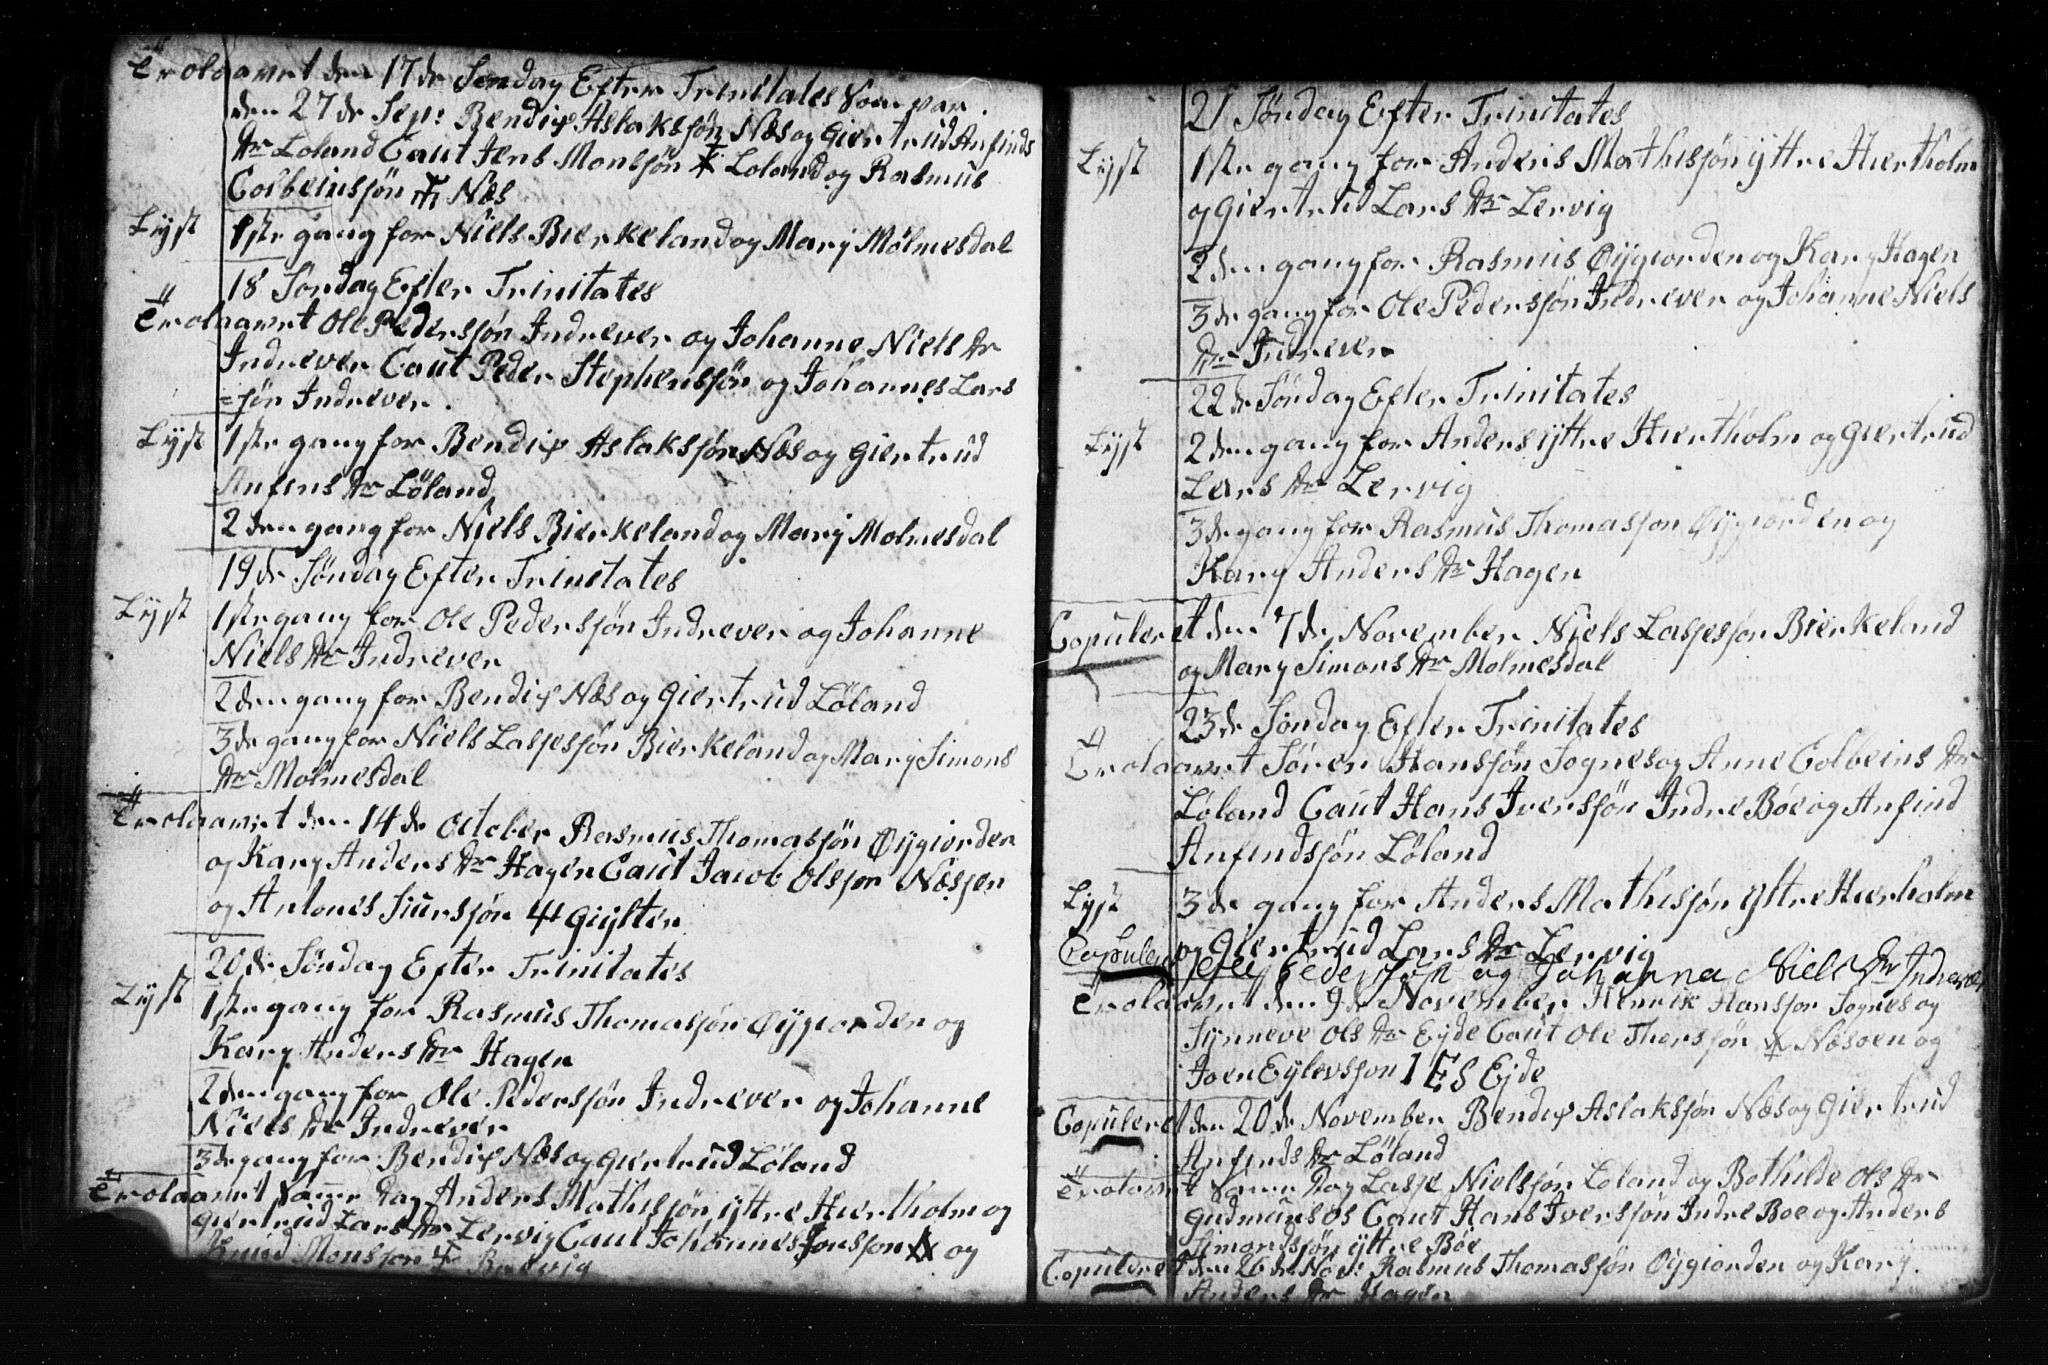 Trolaavet den 17de Søndag Efter Trinitates Som var
den 27de Sep: Bendix Aslaksjøn Næs og Giertrud Anfinds
dr Loland Caut Jens Monsjøn Loland og Rasmus
Colbeinsjøn Næs
Lyst 1ste gang for Niels Bierkeland og Mary Mølmesdal
18 Søndag Efter Trinitates
Trolaavet Ole Pedersjøn Indrever og Johanne Niels dr
Indrever Caut Peder Stephensjøn og Johannes Lars
=jøn Indrever.
Lyst 1ste gang for Bendix Aslaksjøn Næs og Giertrud
Anfens dr Løland
2den gang for Niels Bierkeland og Mary Molmesdal
19de Søndag Efter Trinitates
Lyst 1ste gang for Ole Pedersjøn Indrever og Johanne
Niels dr Indrever
2den gang for Bendix Næs og Giertrud Løland
3de gang for Niels Lasjesjøn Bierkeland og Mary Simons
dr Molmesdal
Trolaavet den 14de October Rasmus Thomasjøn Øygiorden
og Kary Anders dr Hagen Caut Jacob Olsjon Næsjen
og Antonis Siursjøn Giylten
20de Søndag Efter Trinitates
Lyst 1ste gang for Rasmus Thomasjøn Øygiorden og
Kary Anders dr Hagen
2den gang for Ole Pedersjøn Indrever og Johanne
Niels dr Indrever
3de gang for Bendix Næs og Giertrud Løland
Trolaavet Same dag Anders Mathisjøn yttre Hiertholm og
Giertrud Lars dr Lervig Caut Johannes Jonsjon og
Knud Monsjon Bredvig
21 Søndag Efter Trinitates
Lyst 1ste gang for Anders Mathisjøn yttre Hiertholm
og Giertrud Lars dr Lervig
2den gang for Rasmus Øygiorden og Kary Hagen
3de gang for Ole Pedersjøn Indrever og Johanne Niels
dr Indrever
22de Søndag Efter Trinitates
Lyst 2den gang for Anders yttre Hiertholm og Giertrud
Lars dr Lervig
3de gang for Rasmus Thomasjon Øygiorden og
Kary Anders dr Hagen
Copuleret den 7de November Niels Lasjesjøn Bierkeland
og Mary Simons dr Molmesdal
23de Søndag Efter Trinitates
Trolaavet Søren Hansjøn Sognes og Anne Colbeins dr
Loland Caut Hans Iversjøn Indre Bøe og Anfind
Anfindsjøn Løland
Lyst 3de gang for Anders Mathisjøn yttre Hierholm
og Giertrud Lars dr Lervig
Copuleret Ole Pedersjøn og Johanna Niels dr Indrevær
Trolaavet den 9de November Henrik Hansjon Sognes og
Synneve Ols dr Eyde Caut Ole Thorsjøn Næsoen og
Joen Eylevsjon IES Eide
Copuleret den 20de November Bendix Aslaksjøn Næs og Giertrud
Anfinds dr Løland
Trolaavet Same Dag Lasje Nielsjøn Loland og Bothilde Ols dr
Gudmunsøs Caut Hans Iversjøn Indre Boe og Anders
Simonsjøn yttre Bøe
Copuleret den 26de Nov: Rasmus Thomasjøn Øygiorden og Kary
Anders dr Hagen